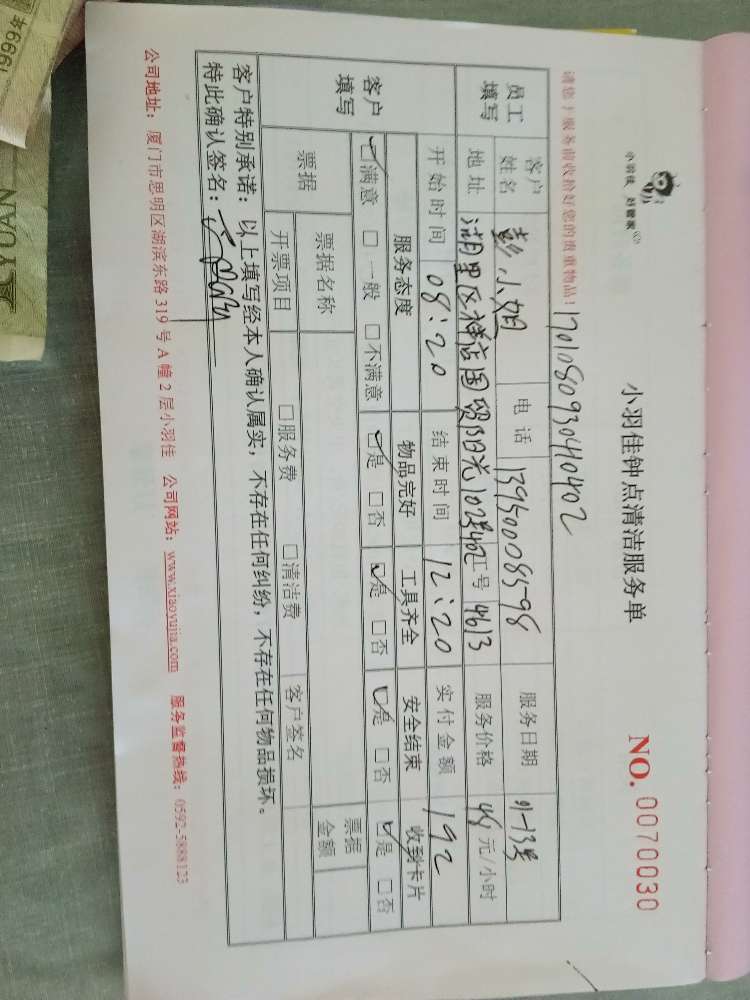 小羽佳 好管家
小羽佳钟点清洁服务单
NO. 0070030
请您于服务前收拾好您的贵重物品!
1701080930410402
员工填写
客户姓名 彭小姐 电话 13950008598 服务日期 01-13号
地址 湖里区祥店国贸阳光102号402 工号 4613 服务价格 48 元/小时
开始时间 08:20 结束时间 12:20 实付金额 192
客户填写
服务态度 物品完好 工具齐全 安全结束 收到卡片
☑满意 □一般 □不满意 ☑是 □否 ☑是 □否 ☑是 □否 ☑是 □否
票据 票据名称 票据金额
开票项目 □服务费 □清洁费 客户签名
客户特别承诺:以上填写经本人确认属实,不存在任何纠纷,不存在任何物品损坏。
特此确认签名:
公司地址:厦门市思明区湖滨东路 319 号 A 幢 2 层小羽佳 公司网站:www.xiaoyujia.com 服务监督热线:0592-5888123
YUAN